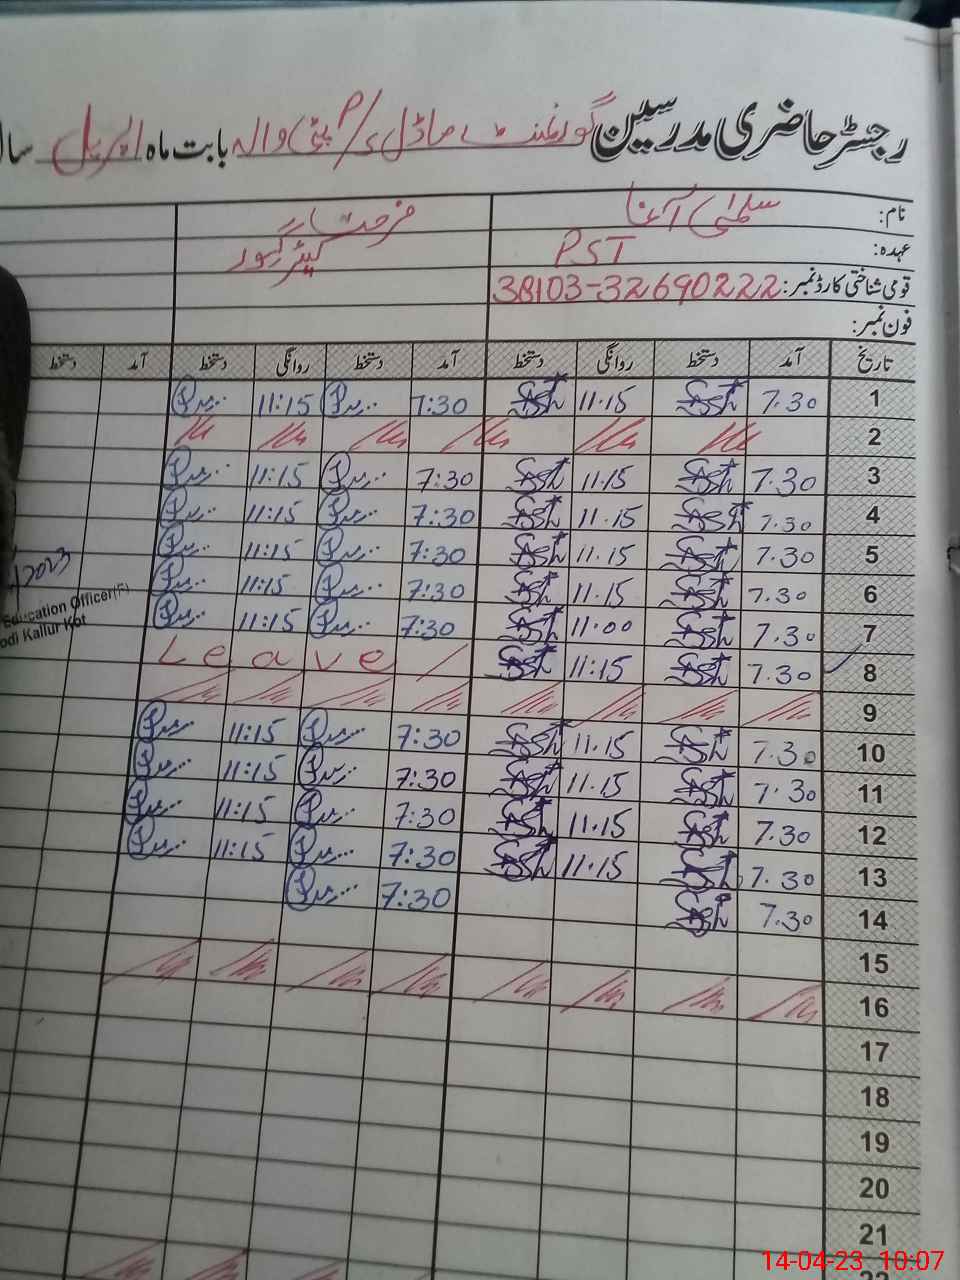 رجسٹر حاضری مدرسین گورنمنٹ ماڈل /P والہ بابت ماہ اپریل
نام: سلمیٰ
عہدہ: PST
کیئر گیور
قومی شناختی کارڈ نمبر: 38103-32690222
فون نمبر:
تاریخ آمد دستخط روانگی دستخط آمد دستخط روانگی دستخط آمد دستخط
1 7.30 11.15 7:30 11:15
2
3 7.30 11.15 7:30 11:15
4 7.30 11.15 7:30 11:15
5 7.30 11.15 7:30 11:15
6 7.30 11.15 7:30 11:15
7 7.30 11.00 7:30 11:15
8 7.30 11:15 Leave
9
10 7.30 11.15 7:30 11:15
11 7.30 11.15 7:30 11:15
12 7.30 11.15 7:30 11:15
13 7.30 11.15 7:30 11:15
14 7.30 7:30
15
16
17
18
19
20
21
2023
Education Officer(F)
Kallur Kot
14-04-23 10:07